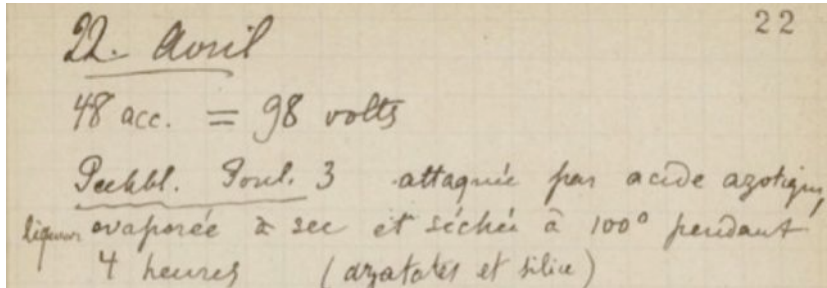 22
22. Avril
48 acc. = 98 volts
Pechbl. 3 attaquée par acide azotique,
liqueur evaporée à sec et séchée à 100° pendant
4 heures (azotates et silice)